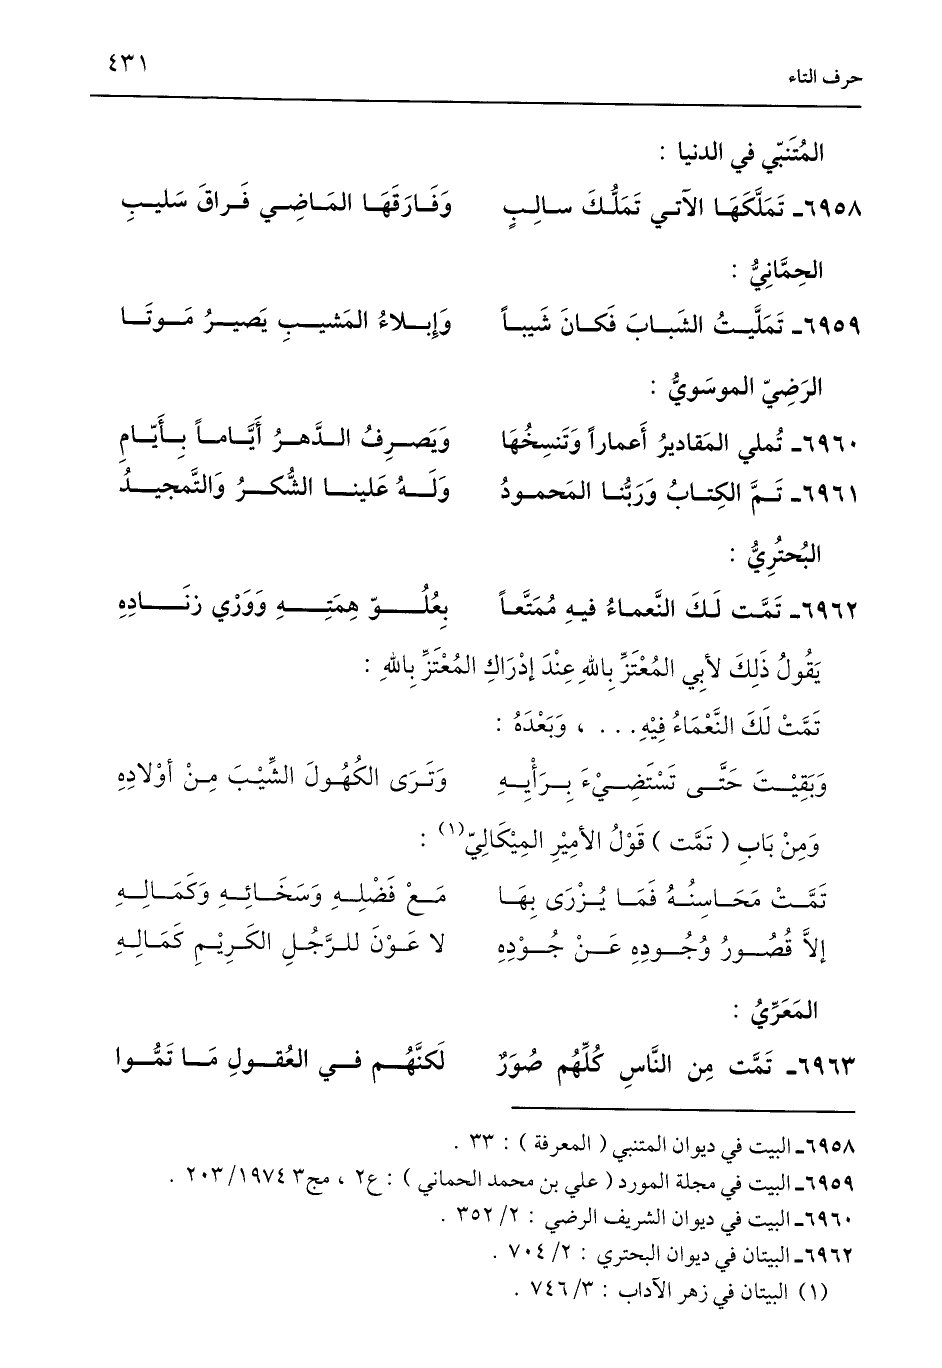 ٤٣١
حرف التاء
المُتَنَبّي في الدنيا :
٦٩٥٨ـ تَمَلَّكَهَا الآتي تَمَلُّكَ سالِبٍ وَفَارَقَهَا المَاضِي فَراقَ سَليبِ
الحِمَّانِيُّ :
٦٩٥٩ـ تَمَلَّيتُ الشَّبابَ فَكانَ شَيباً وَإِبلاءُ المَشيبِ يَصيرُ مَوتَا
الرَضِيّ الموسَويُّ :
٦٩٦٠ـ تُملي المَقاديرُ أَعماراً وَتَنسِخُهَا وَيَصرِفُ الدَّهرُ أَيَّاماً بِأَيّامِ
٦٩٦١ـ تَمَّ الكِتابُ وَرَبُّنا المَحمودُ وَلَهُ عَلينا الشُّكرُ وَالتَّمجيدُ
البُحتُرِيُّ :
٦٩٦٢ـ تَمَّت لَكَ النَّعماءُ فيهِ مُمَتَّعاً بِعُلُوّ هِمَتِهِ وَوَرْي زنَادِهِ
يَقُولُ ذَلِكَ لأبي المُعْتَزِّ بِاللهِ عِنْدَ إدْرَاكِ المُعْتَزِّ بِاللهِ :
تَمَّتْ لَكَ النَّعْمَاءُ فِيْهِ . . . ، وَبَعْدَهُ :
وَبَقِيْتَ حَتَّى تَسْتَضِيْءَ بِرَأْيِهِ وَتَرَى الكُهُولَ الشِّيْبَ مِنْ أوْلادِهِ
وَمِنْ بَابِ ( تَمَّت ) قَوْلُ الأمِيْرِ المِيْكَالِيّ(١) :
تَمَّتْ مَحَاسِنُهُ فَمَا يُزْرَى بِهَا مَعْ فَضْلِهِ وَسَخَائِهِ وَكَمَالِهِ
إلاَّ قُصُورُ وُجُودِهِ عَنْ جُوْدِهِ لا عَوْنَ للرَّجُلِ الكَرِيْمِ كَمَالِهِ
المَعَرِّيُ :
٦٩٦٣ـ تَمَّت مِن النَّاسِ كُلِّهُم صُوَرٌ لَكنَّهُم في العُقولِ مَا تَمُّوا
٦٩٥٨ـ البيت في ديوان المتنبي ( المعرفة ) : ٣٣ .
٦٩٥٩ـ البيت في مجلة المورد ( علي بن محمد الحماني ) : ع٢ ، مج٣ ١٩٧٤/ ٢٠٣ .
٦٩٦٠ـ البيت في ديوان الشريف الرضي : ٢/ ٣٥٢ .
٦٩٦٢ـ البيتان في ديوان البحتري : ٢/ ٧٠٤ .
(١) البيتان في زهر الآداب : ٣/ ٧٤٦ .